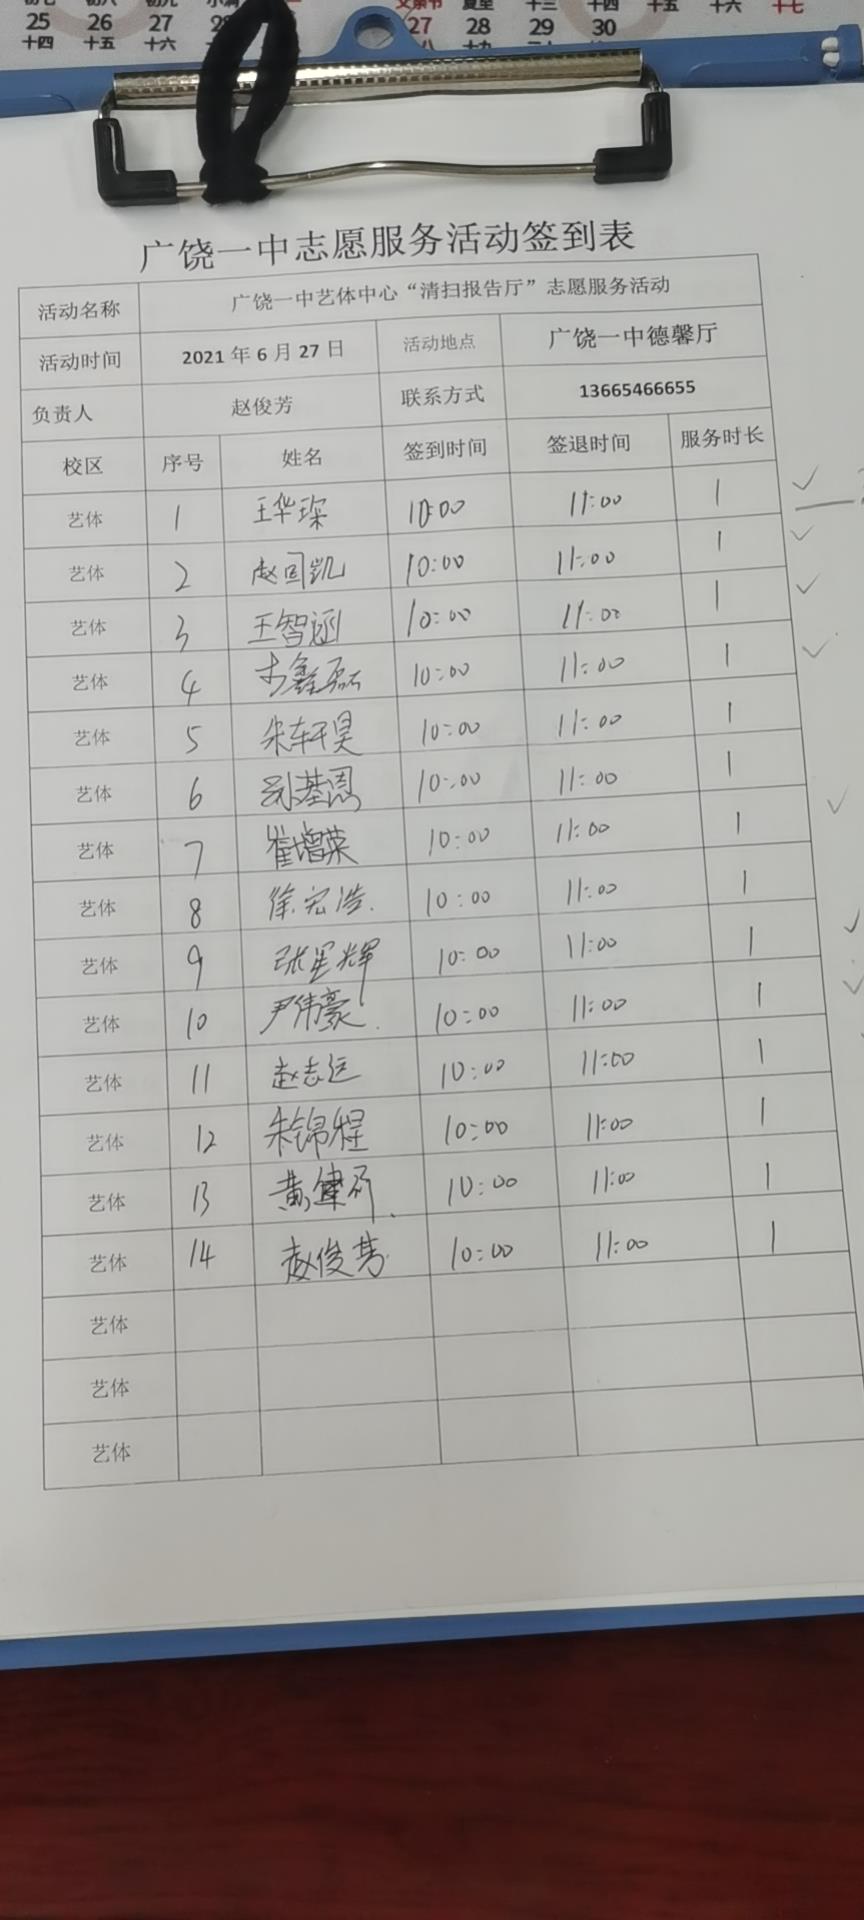 25 26 27 28 27 28 29 30
十四 十五 十六
父亲节 夏至 十三 十四 十五 十六 十七
广饶一中志愿服务活动签到表
活动名称 广饶一中艺体中心“清扫报告厅”志愿服务活动
活动时间 2021 年 6 月 27 日 活动地点 广饶一中德馨厅
负责人 赵俊芳 联系方式 13665466655
校区 序号 姓名 签到时间 签退时间 服务时长
艺体 1 王华琛 10:00 11:00 1
艺体 2 赵国凯 10:00 11:00 1
艺体 3 王智涵 10:00 11:00 1
艺体 4 鑫磊 10:00 11:00 1
艺体 5 朱轩昊 10:00 11:00 1
艺体 6 10:00 11:00 1
艺体 7 崔增荣 10:00 11:00 1
艺体 8 徐宏浩 10:00 11:00 1
艺体 9 张星辉 10:00 11:00 1
艺体 10 尹伟豪 10:00 11:00 1
艺体 11 赵志远 10:00 11:00 1
艺体 12 朱锦程 10:00 11:00 1
艺体 13 黄健 10:00 11:00 1
艺体 14 赵俊芳 10:00 11:00 1
艺体
艺体
艺体